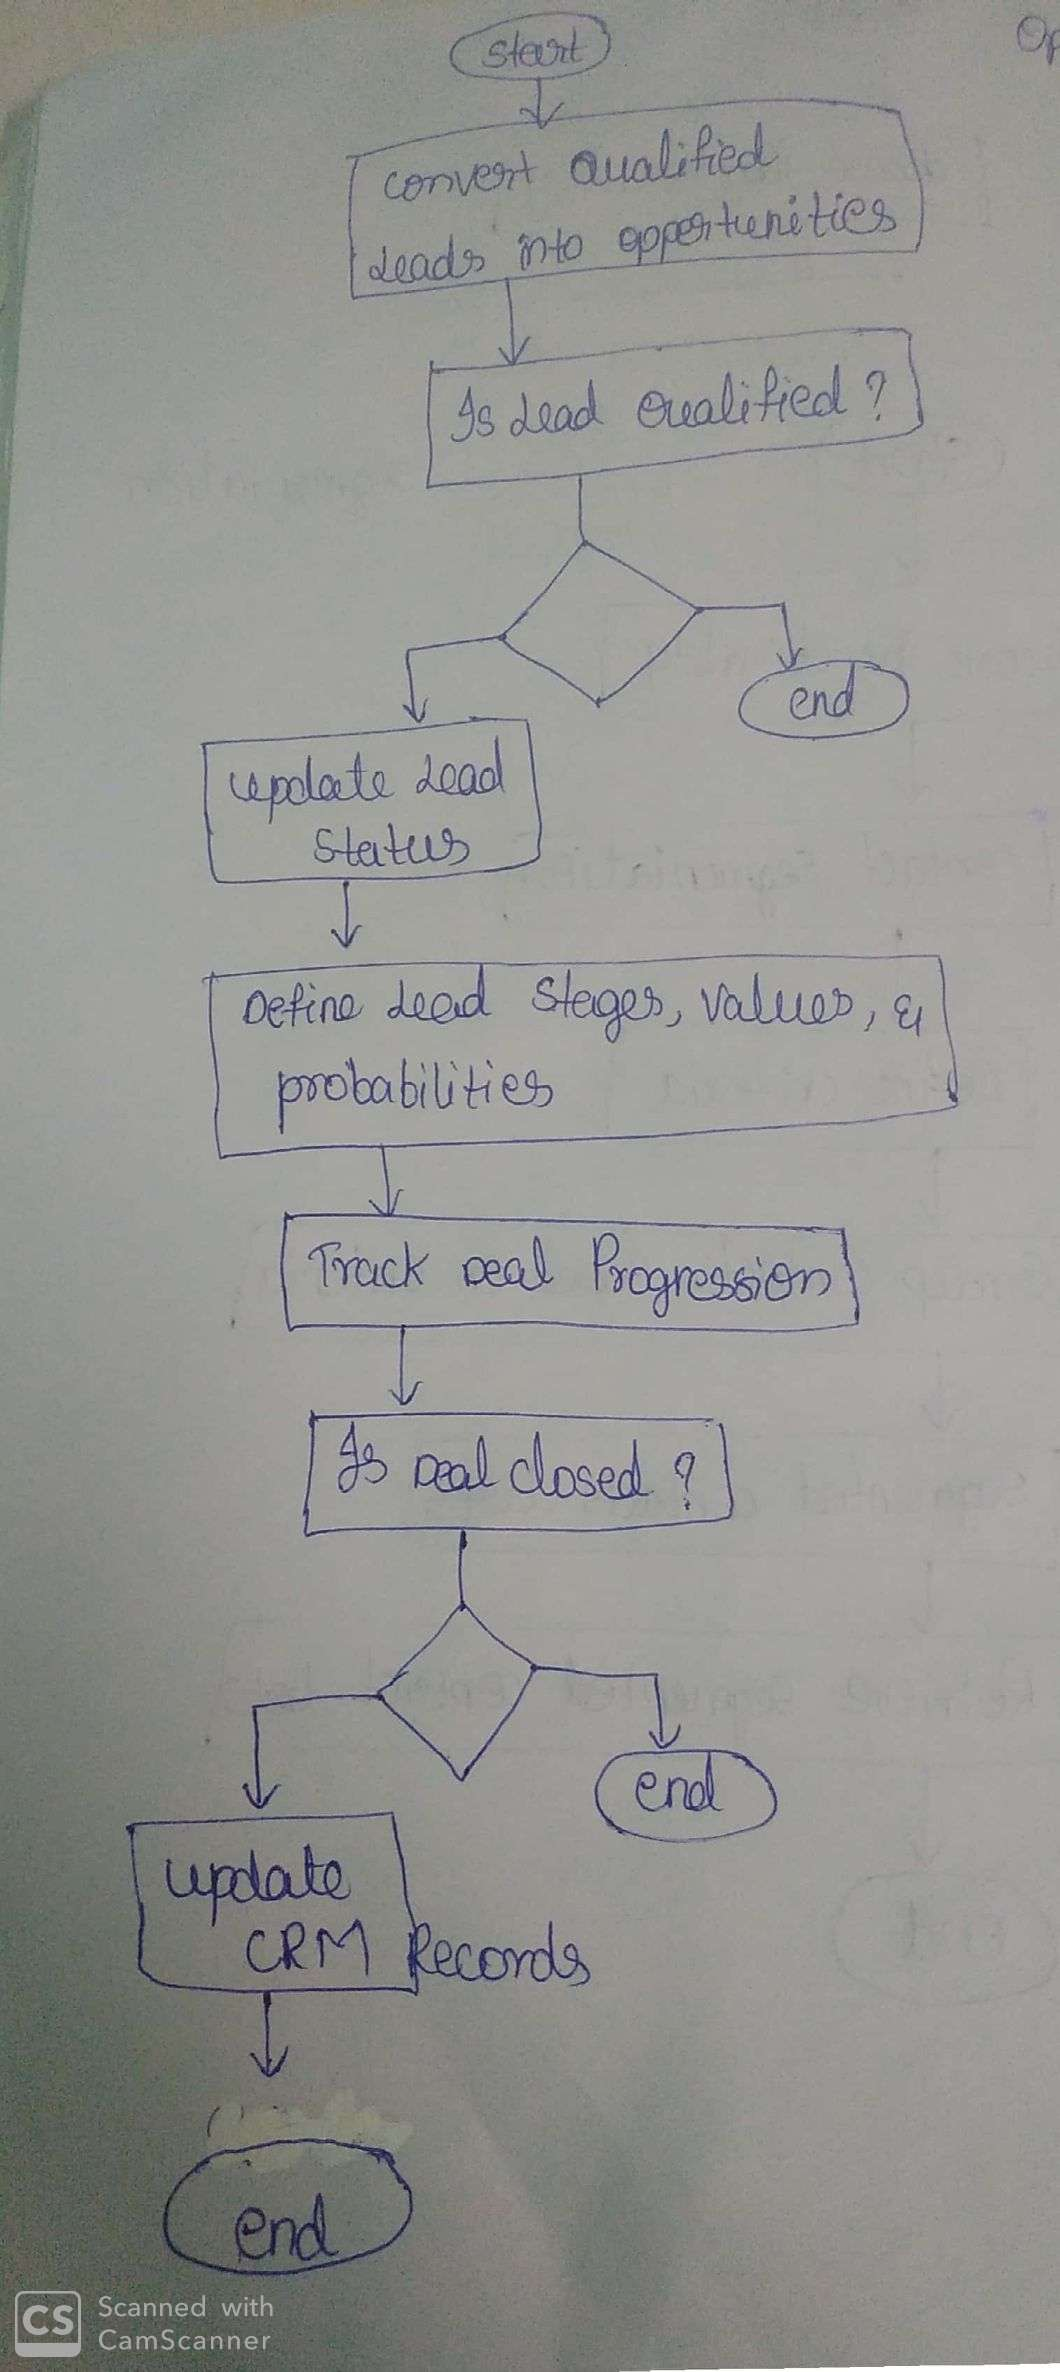 Start
Op
convert Qualified
Leads into oppertunities
Is Lead Qualified ?
end
update Lead
Status
Define Lead Stages, values, &
probabilities
Track Deal Progression
Is Deal closed ?
end
update
CRM Records
end
CS Scanned with
CamScanner